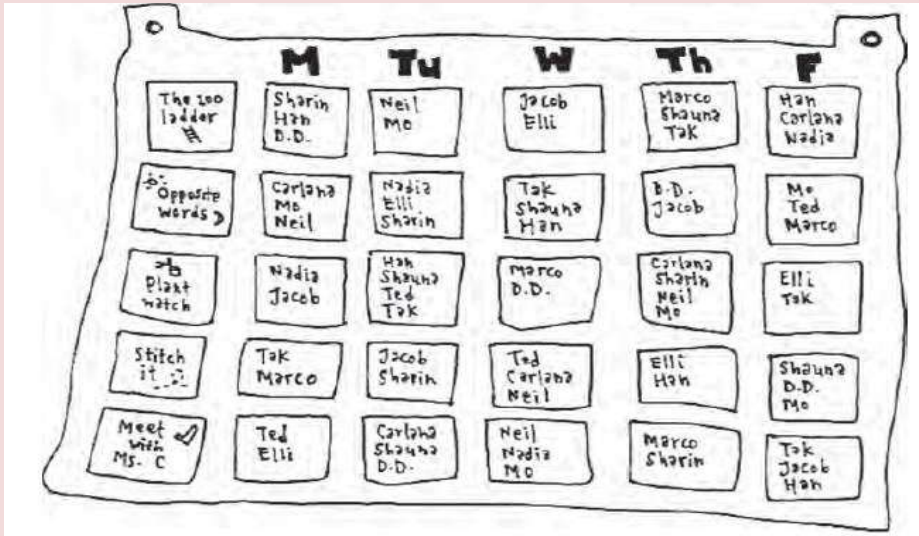 M Tu W Th F
The
ladder
Sharin
Han
D.D.
Neil
Mo
Jacob
Elli
Marco
Shauna
Tak
Han
Carlana
Nadia
Opposite
words
Carlana
Mo
Neil
Nadia
Elli
Sharin
Tak
Shauna
Han
D.D.
Jacob
Mo
Ted
Marco
Plant
watch
Nadia
Jacob
Han
Shauna
Ted
Tak
Marco
D.D.
Carlana
Sharin
Neil
Mo
Elli
Tak
Stitch
it
Tak
Marco
Jacob
Sharin
Ted
Carlana
Neil
Elli
Han
Shauna
D.D.
Mo
Meet
with
Ms. C
Ted
Elli
Carlana
Shauna
D.D.
Neil
Nadia
Mo
Marco
Sharin
Tak
Jacob
Han